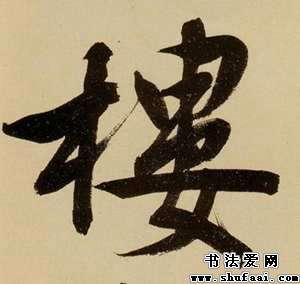 樓
书法爱网
www.shufaai.com